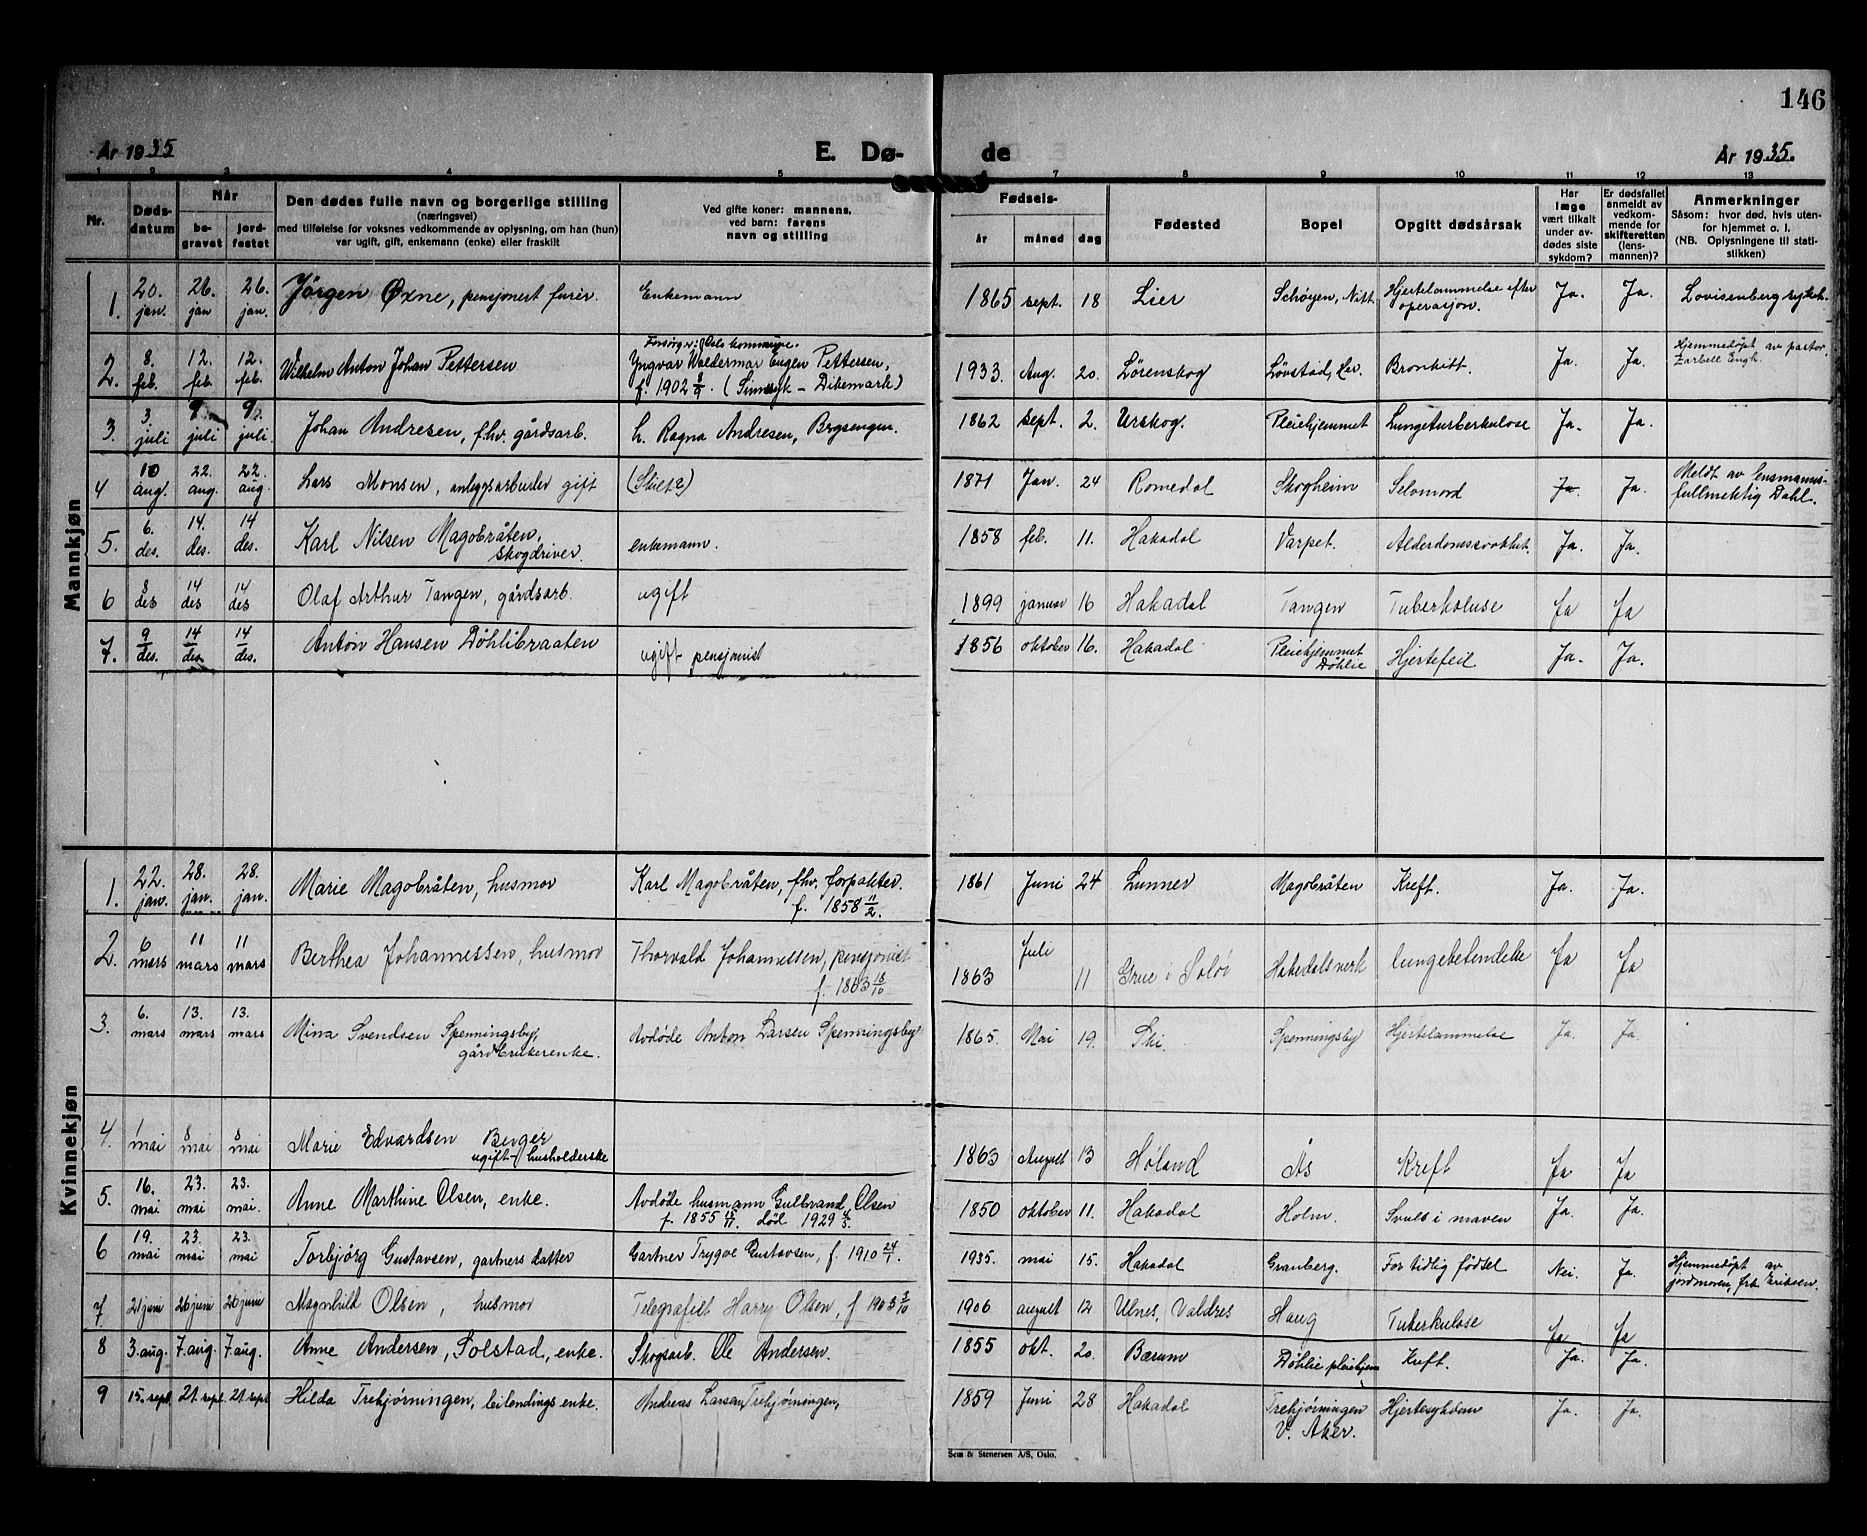 146
År 1935
E. Dø-
de
År 1935.
1 2 3 4 5 6 7 8 9 10 11 12 13
Nr.
Døds-
datum
Når
be-
gravet
jord-
festet
Den dødes fulle navn og borgerlige stilling
(næringsvei)
med tilføielse for voksnes vedkommende av oplysning, om han (hun)
var ugift, gift, enkemann (enke) eller fraskilt
Ved gifte koner: mannens,
ved barn: farens
navn og stilling
Fødsels-
år måned dag
Fødested
Bopel
Opgitt dødsårsak
Har
læge
vært tilkalt
under av-
dødes siste
sykdom?
Er dødsfallet
anmeldt av
vedkom-
mende for
skifteretten
(lens-
mannen)?
Anmerkninger
Såsom: hvor død, hvis uten-
for hjemmet o. l.
(NB. Oplysningene til stati-
stikken)
Mannkjøn
1. 20. jan. 26. jan 26. jan. Jörgen Øxne, pensjonert furer. Enkemann 1865 sept. 18 Lier Schøyen, Nitt. Hjertelammelse efter operasjon. Ja. Ja. Lovisenberg sykeh.
2. 8. feb. 12. feb. 12. feb. Wilhelm Anton Johan Pettersen Forsørger: Oslo kommune.
Yngvar Waldermar Eugen Pettersen,
f. 1902 8/9 (Sinnsyk - Dikemark) 1933. Aug. 20. Lørenskog Løvstad, Har. Bronkitt. Ja. Ja. Hjemmedøpt av pastor Zarbell Engh.
3. 3. juli 9. juli 9. juli. Johan Andresen, fhv. gårdsarb. h. Ragna Andresen, Brgsengen. 1862 sept. 2. Urskog. Pleiehjemmet Lungeturberkulose Ja. Ja.
4 10 aug. 22. aug. 22. aug. Lars Monsen, anleggsarbeider gift (Skilt?) 1871 Jan. 24 Romedal Skogheim Selvmord Ja. Ja. Meldt av lensmanns-
fullmektig Dahl.
5. 6. des. 14. des. 14 des. Karl Nilsen Magobråten,
skogdriver. enkemann. 1858 feb. 11. Hakadal Varpet. Alderdomssvakhet. Ja. Ja.
6 8 des 14 des 14 des Olaf Arthur Tangen, gårdsarb. ugift 1899 januar 16 Hakadal Tangen Tuberkulose Ja Ja
7. 9/des. 14/des. 14/des. Anton Hansen Döhlibraaten ugift pensjonist 1856 oktober 16. Hakadal Pleiehjemmet
Döhlie Hjertefeil Ja. Ja.
Kvinnekjøn
1. 22. jan. 28. jan. 28. jan. Marie Magobråten, husmor Karl Magobråten, fhv. forpakter.
f. 1858 11/2. 1861 Juni 24 Lunner Magobråten Kreft. Ja. Ja.
2. 6 mars 11 mars 11 mars Berthea Johannessen, husmor Thorvald Johannessen, pensjonist
f. 1863 18/10 1863 Juli 11 Grue i Solør Hakadalsverk lungebetendelse Ja Ja
3. 6. mars 13. mars 13. mars Mina Svendsen Spenningsby,
gårdbrukerenke. Avdøde Anton Larsen Spenningsby 1865. Mai 19. Ski. Spenningsby Hjertelammelse Ja. Ja.
4. 1 mai 8 mai 8 mai Marie Edvardsen Berger
ugift husholderske 1863 August 13 Høland Ås Kreft Ja Ja
5. 16. mai 23. mai 23. mai. Anne Marthine Olsen, enke. Avdøde husmann Gulbrand Olsen
f. 1855 15/11. død 1929 4/3. 1850 oktober 11. Hakadal Holm. Svuls i maven Ja. Ja.
6 19. mai 23. mai 23. mai Torbjörg Gustavsen, gartners datter Gartner Trygve Gustavsen, f. 1910 24/1. 1935. mai 15. Hakadal Granberg. For tidlig födsel Nei. Ja. Hjemmedöpt av
jordmoren, frk. Eriksen.
7 21 juni 26 juni 26 juni Magnhild Olsen, husmor Telegrafist Harry Olsen, f 1903 3/10 1906 august 12 Ulnes, Valdres Haug Tuberkulose Ja Ja
8 3. aug. 7. aug. 7. aug. Anne Andersen, Solstad, enke. Skogsarb. Ole Andersen. 1855 okt. 20. Bærum Döhlie pleiehjem Kreft. Ja. Ja.
9 15. sept 21 sept 21 sept Hilda Trehjørningen, leilendings enke. Andreas Larsen Trehjörningen, 1859 Juni 28 Hakadal Trehjørningen
V. Aker. Hjertesykdom Ja. Ja.
Sem & Stenersen A/S, Oslo.